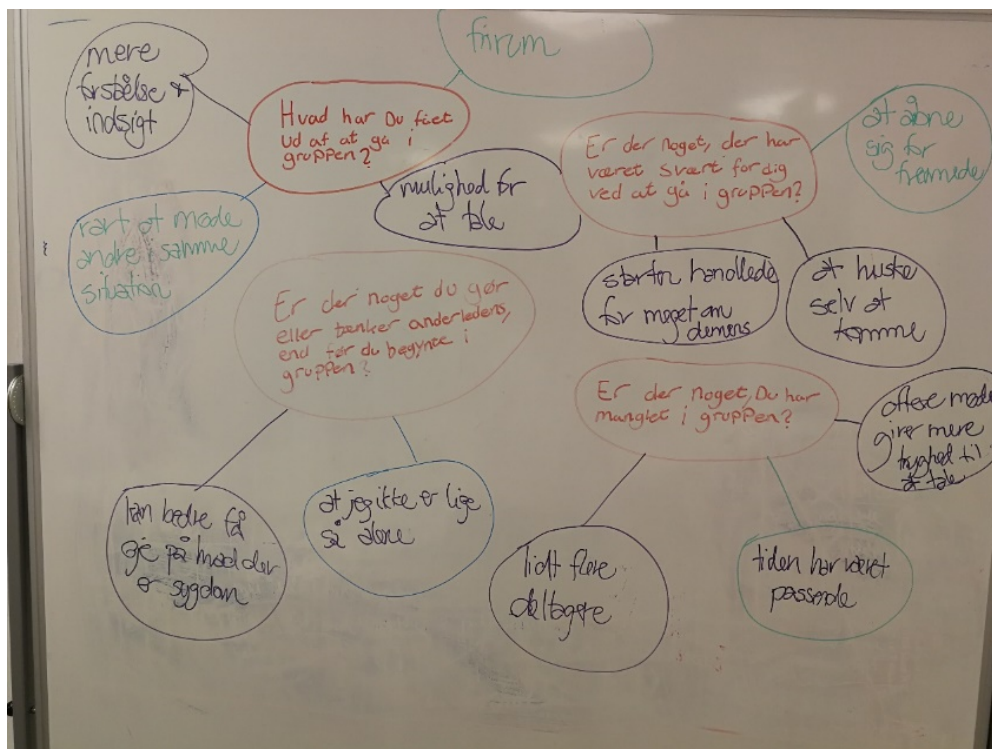 mere
forståelse +
indsigt
frirum
Hvad har Du fået
ud af at gå i
gruppen?
mulighed for
at tale
rart at møde
andre i samme
situation
Er der noget, der har
været svært for dig
ved at gå i gruppen?
at åbne
sig for
fremmede
starten handlede
for meget om
demens
at huske
selv at
komme
Er der noget du gør
eller tænker anderledens,
end før du begynte i
gruppen?
kan bedre få
øje på hvad der
er sygdom
at jeg ikke er lige
så alene
Er der noget, Du har
manglet i gruppen?
oftere møde
giver mere
tryghed til
at tale
lidt flere
deltagere
tiden har været
passende